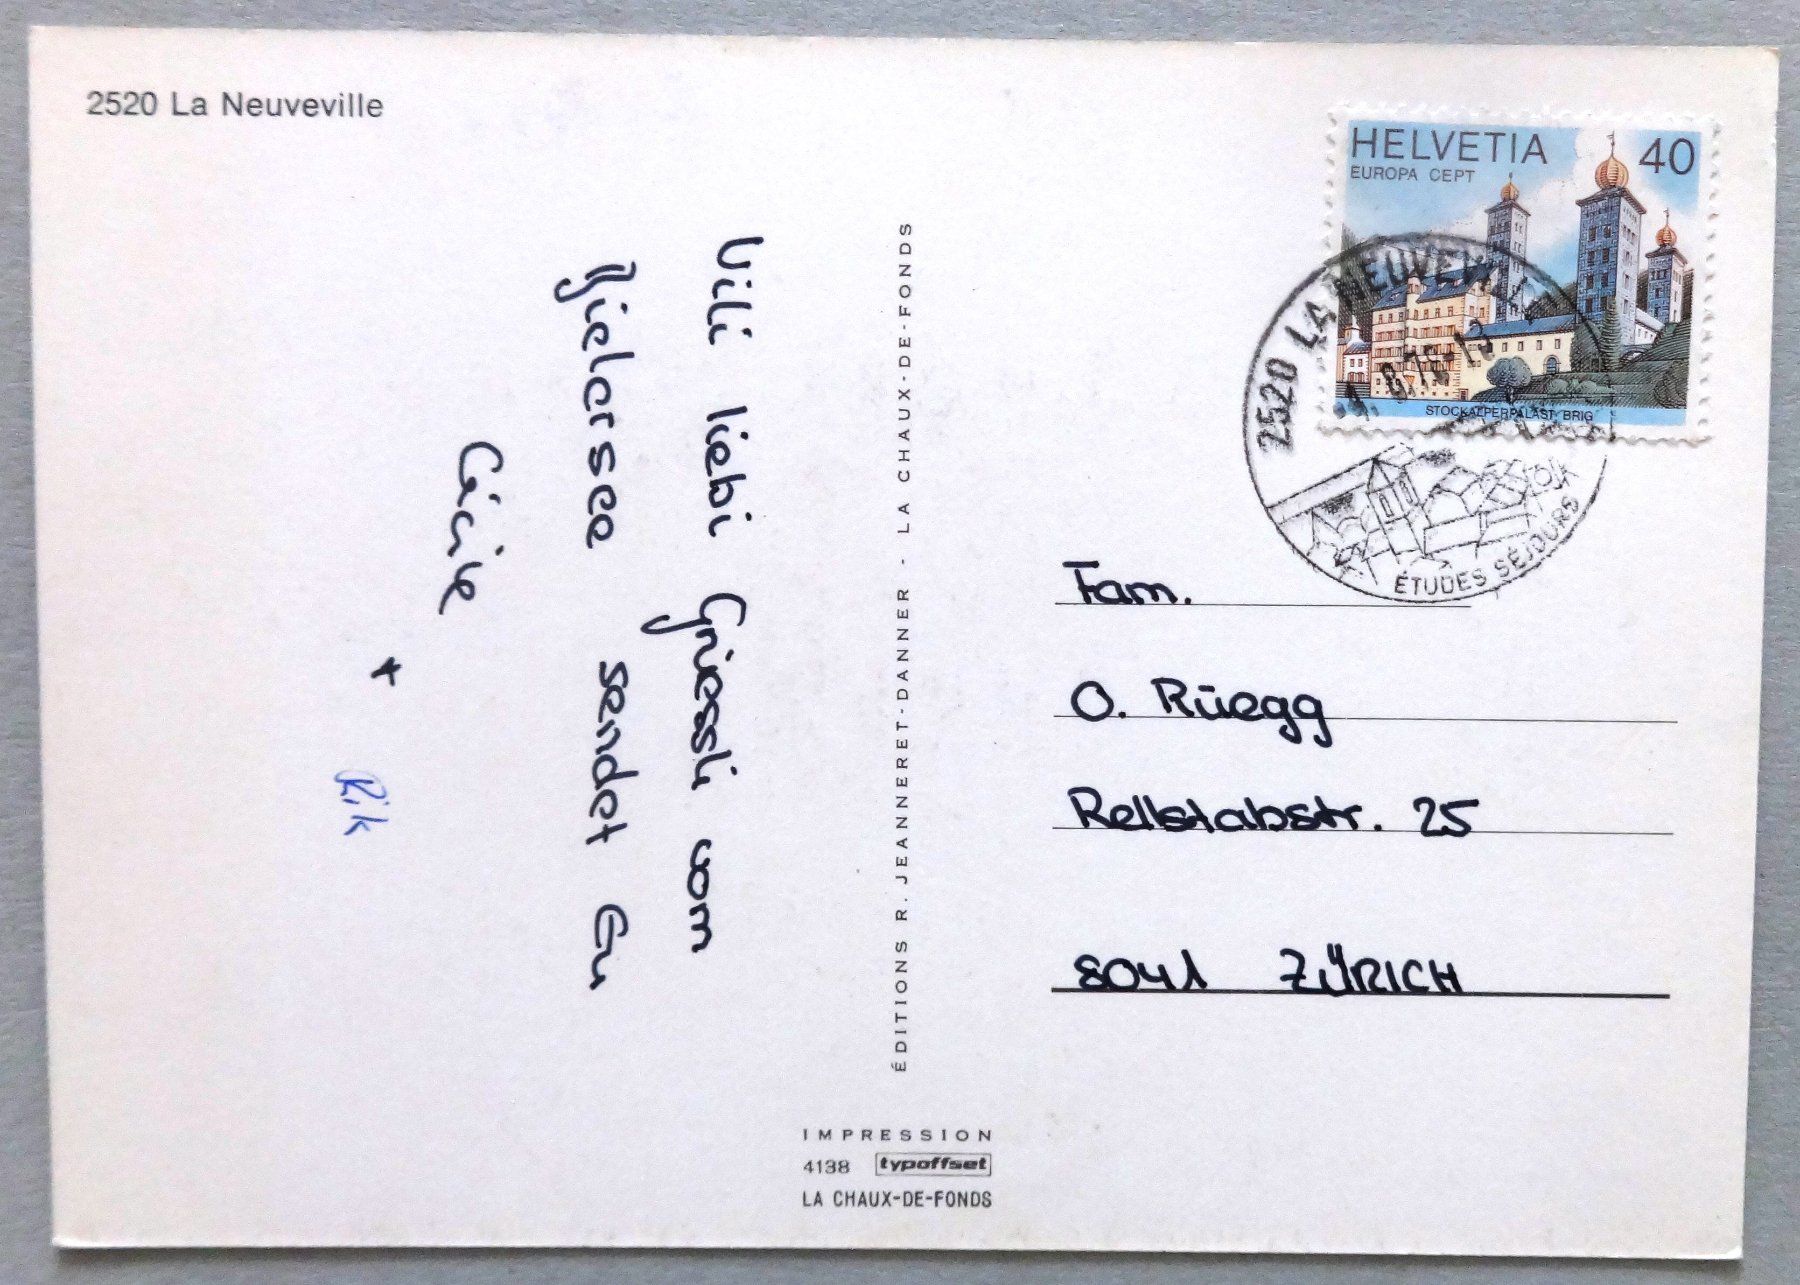 2520 La Neuveville
Vili liebi Grüessli vom
Bielersee sendet Eu
Cécile
+
Rik
ÉDITIONS R. JEANNERET-DANNER - LA CHAUX-DE-FONDS
IMPRESSION
4138 typoffset
LA CHAUX-DE-FONDS
HELVETIA 40
EUROPA CEPT
STOCKALPERPALAST BRIG
2520 LA NEUVEVILLE
ÉTUDES SÉJOURS
Fam.
O. Rüegg
Rellstabstr. 25
8041 ZÜRICH